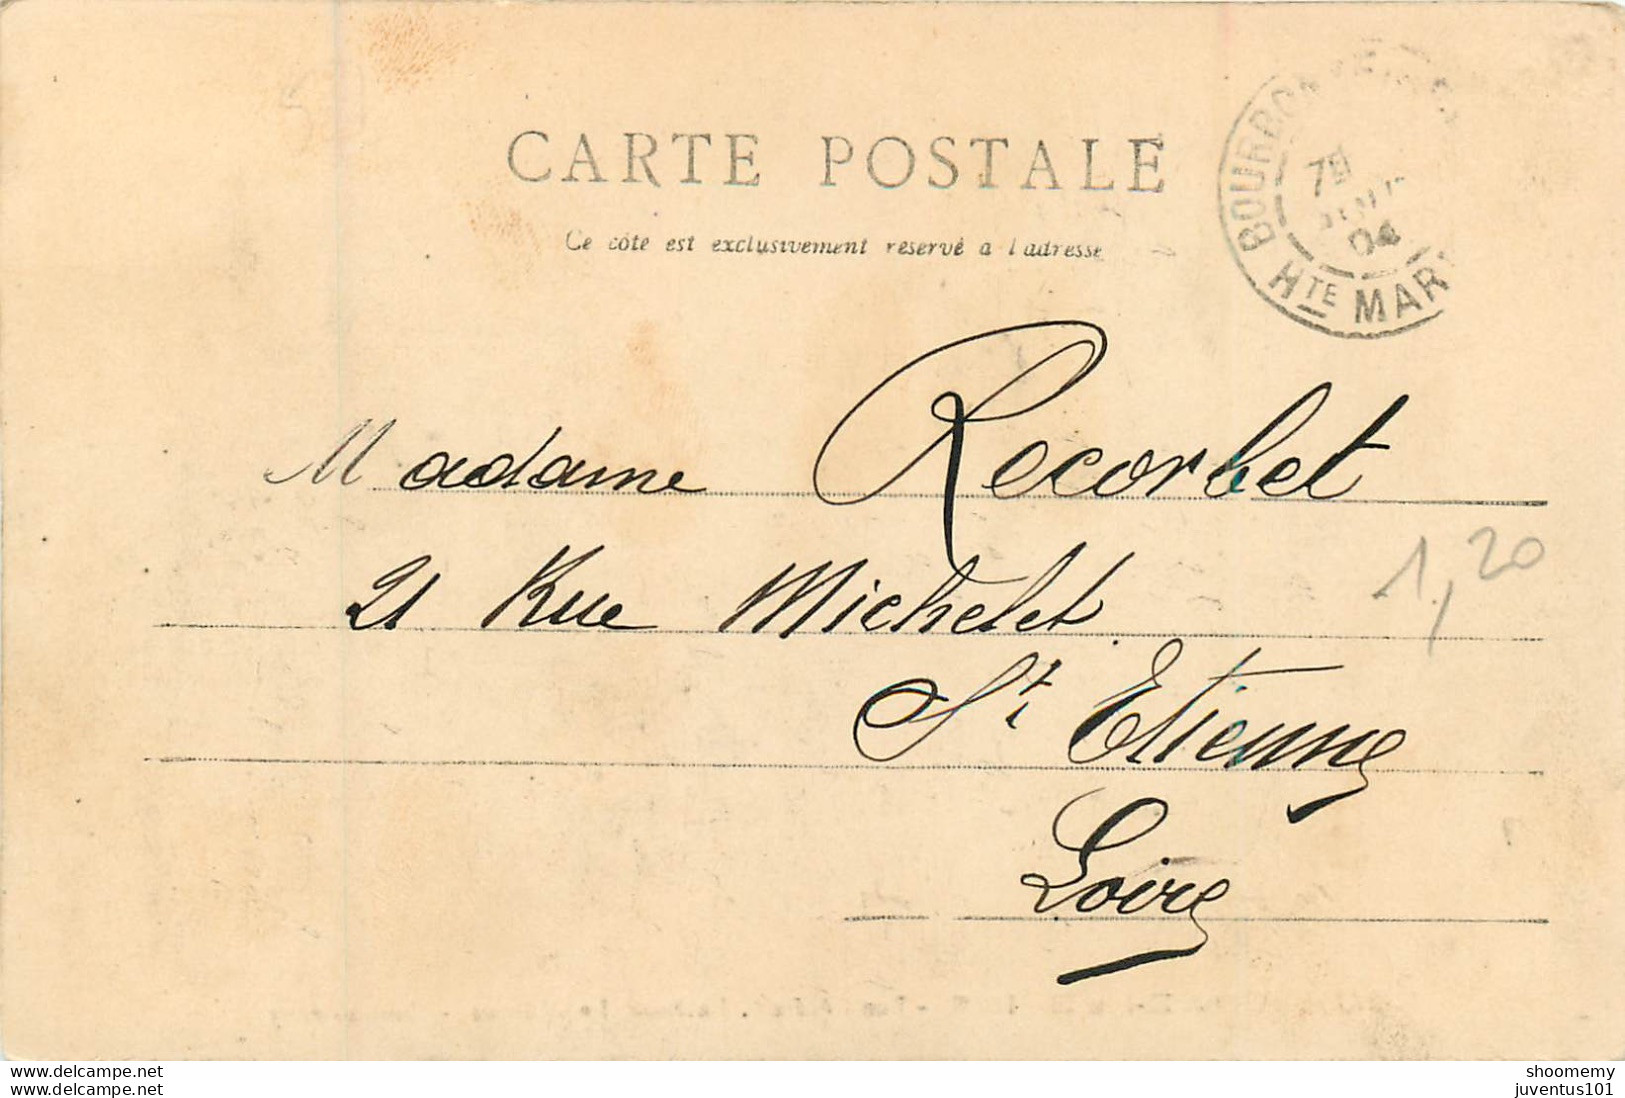 CARTE POSTALE
Ce côté est exclusivement réservé à l'adresse
BOURBON
7E
04
HTE MAR
Madame Recorbet
21 Rue Michelet
St Etienne
Loire
1,20
www.delcampe.net
www.delcampe.net
shoomemy
juventus101